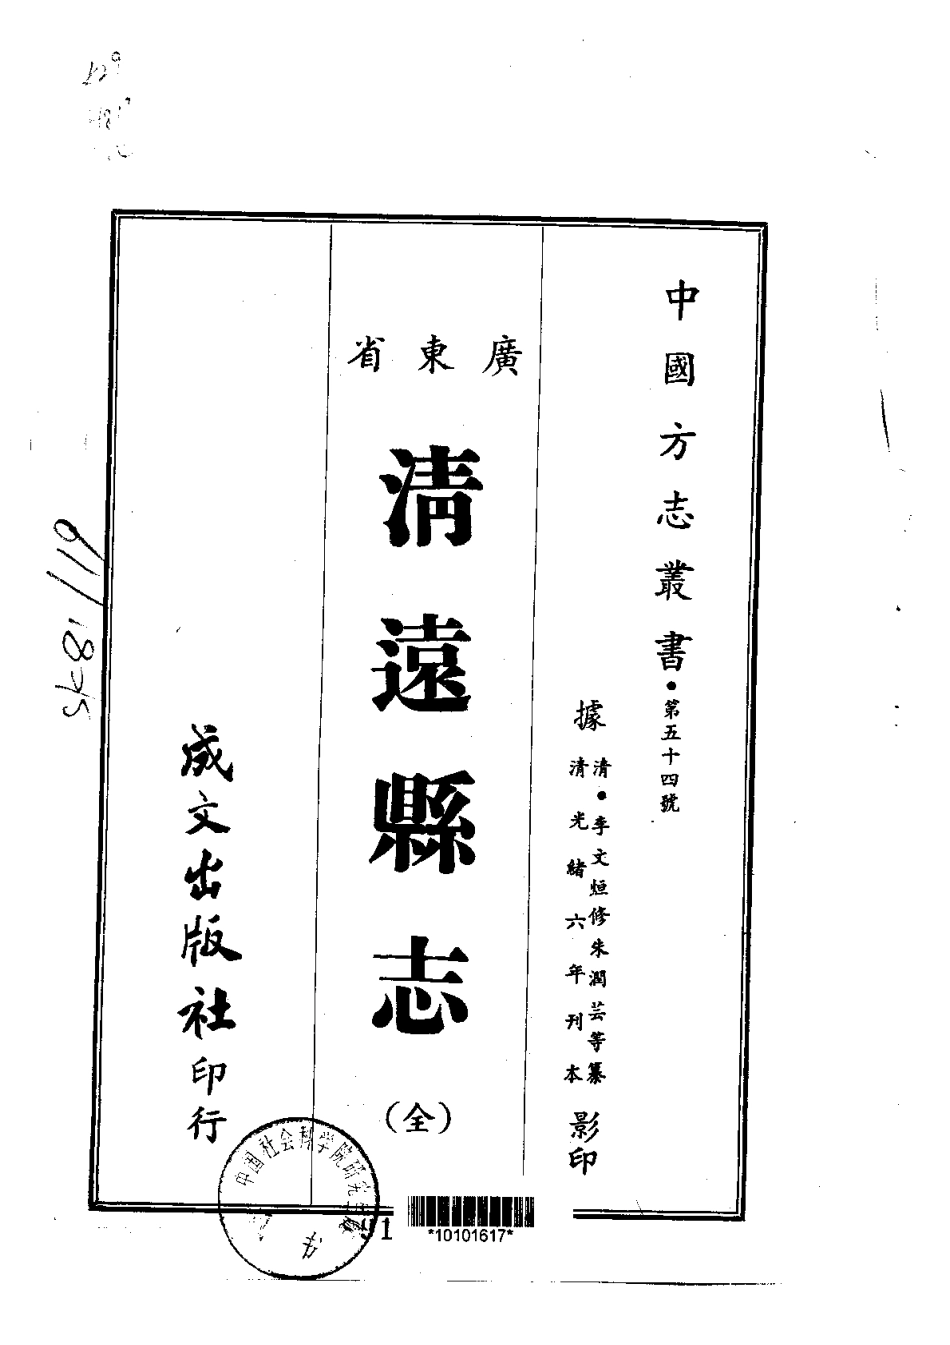 中國方志叢書•第五十四號
據
清•李文烜修朱潤芸等纂
清光緒六年刊本
影印
廣東省
清遠縣志
(全)
成文出版社印行
中国社会科学院研究生院
91
*10101617*